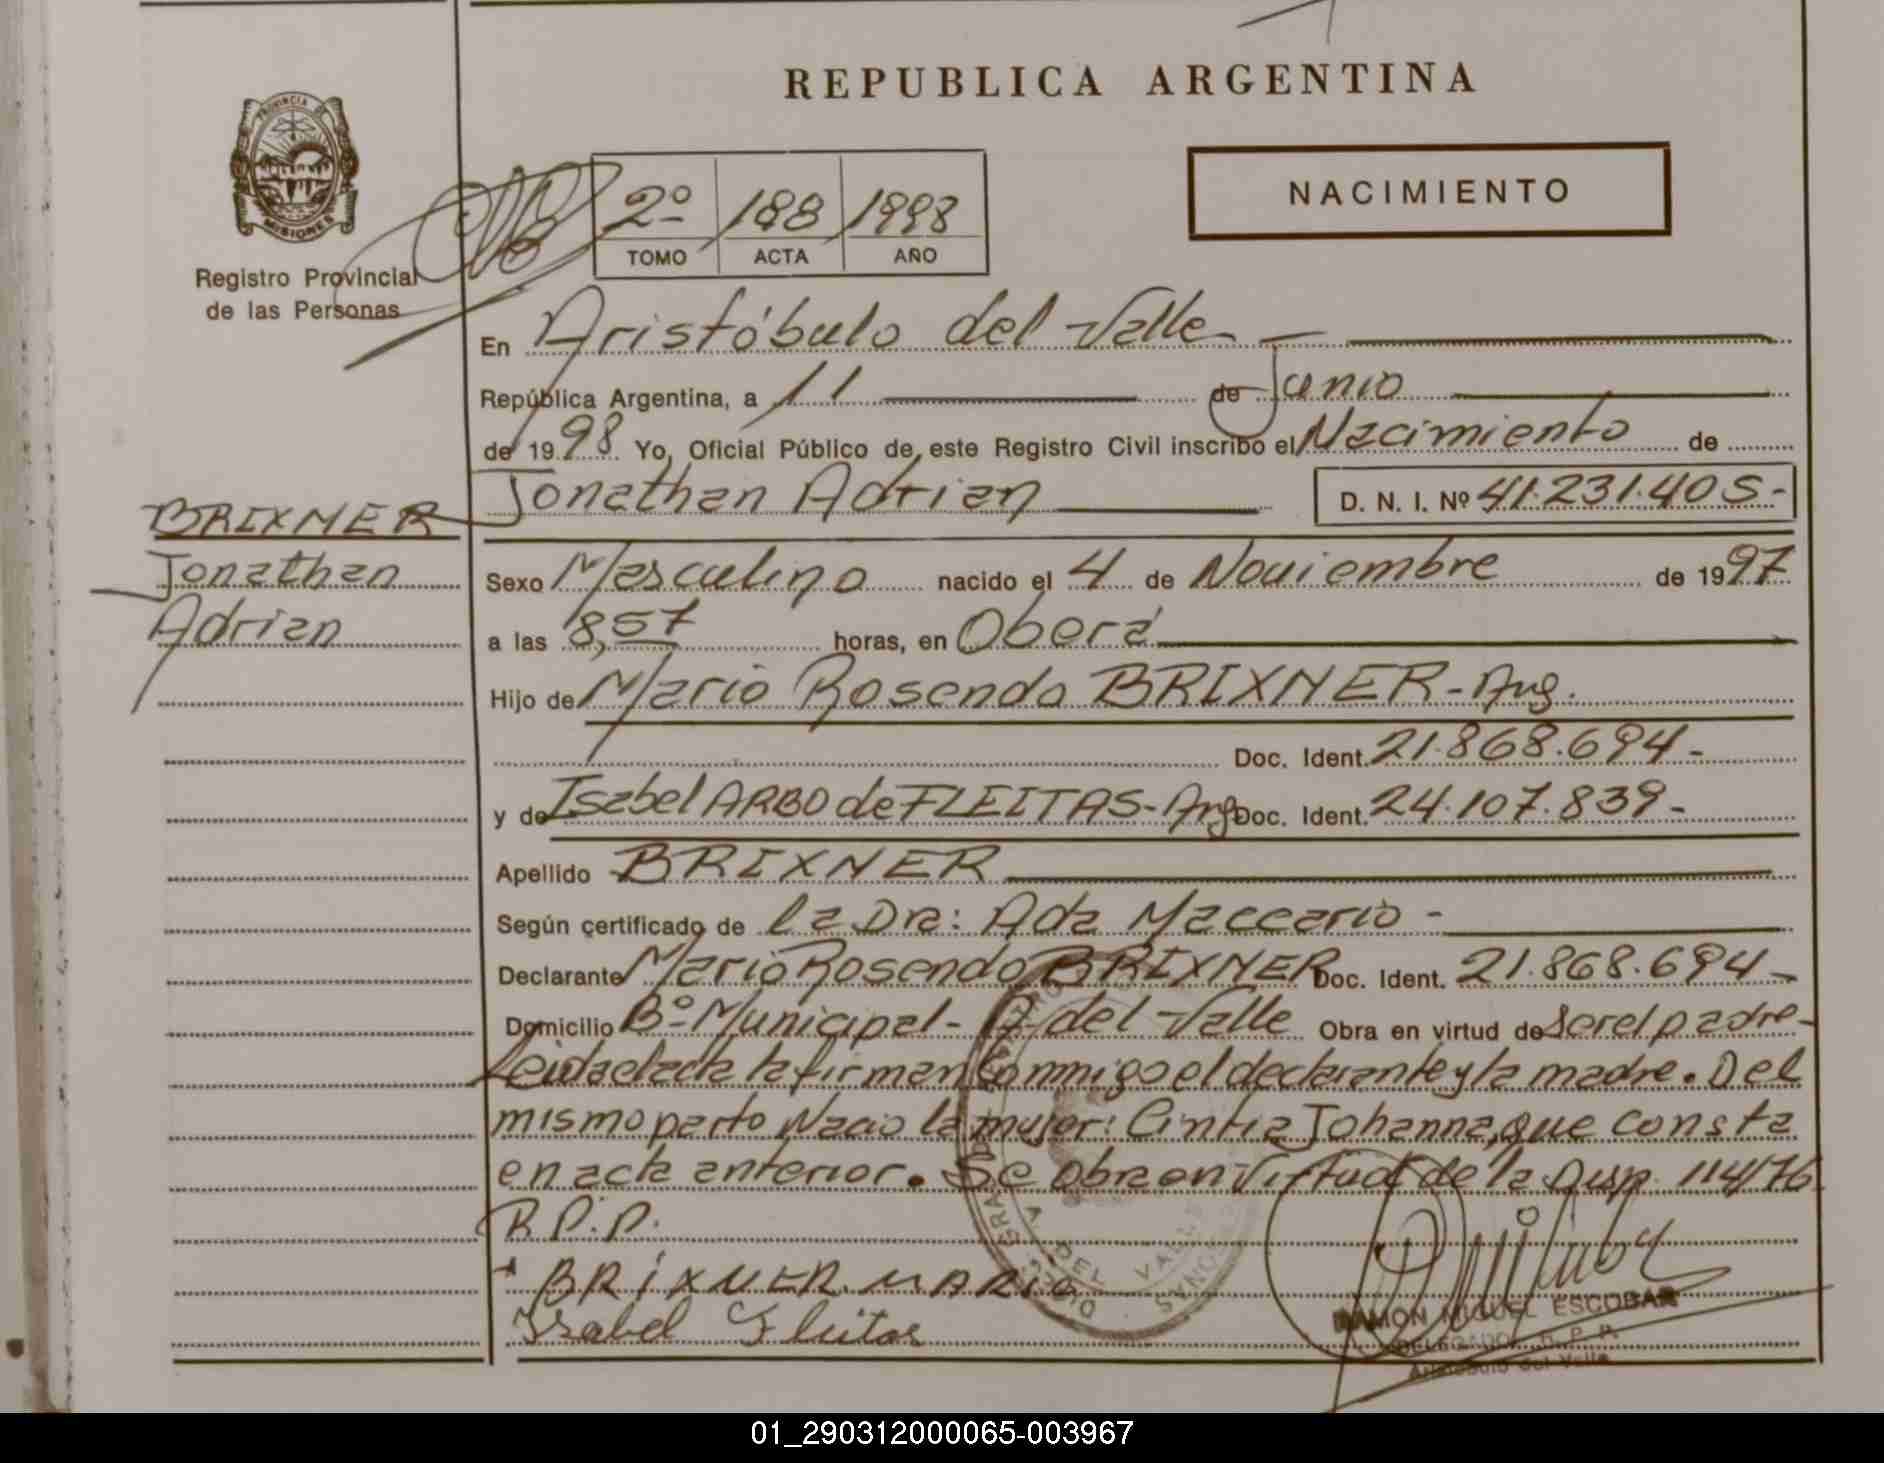 REPUBLICA ARGENTINA
PROVINCIA DE
MISIONES
Registro Provincial
de las Personas
2º 188 1998
TOMO ACTA AÑO
NACIMIENTO
En Aristóbulo del Valle
República Argentina, a 11 de Junio
de 1998 Yo, Oficial Público de este Registro Civil inscribo el Nacimiento de
Jonathan Adrian D. N. I. Nº 41.231.405.-
BRIXNER
Jonathan
Adrian
Sexo Masculino nacido el 4 de Noviembre de 1997
a las 8,57 horas, en Oberá
Hijo de Mario Rosendo BRIXNER - Arg.
Doc. Ident. 21.868.694-
y de Isabel ARBO de FLEITAS - Arg Doc. Ident. 24.107.839-
Apellido BRIXNER
Según certificado de la Dra: Ada Maccario -
Declarante Mario Rosendo BRIXNER Doc. Ident. 21.868.694-
Domicilio Bº Municipal - A. del Valle Obra en virtud de Ser el padre-
Leida el acta la firman Conmigo el declarante y la madre. Del
mismo parto Nacio la mujer: Cintia Johanna, que consta
en acta anterior. Se obra en Virtud de la Disp. 114/76
R.P.P.
BRIXNER MARIO
Isabel Fleitas
RAMON MIGUEL ESCOBAR
DELEGADO R. P. P.
Aristobulo del Valle
01_290312000065-003967